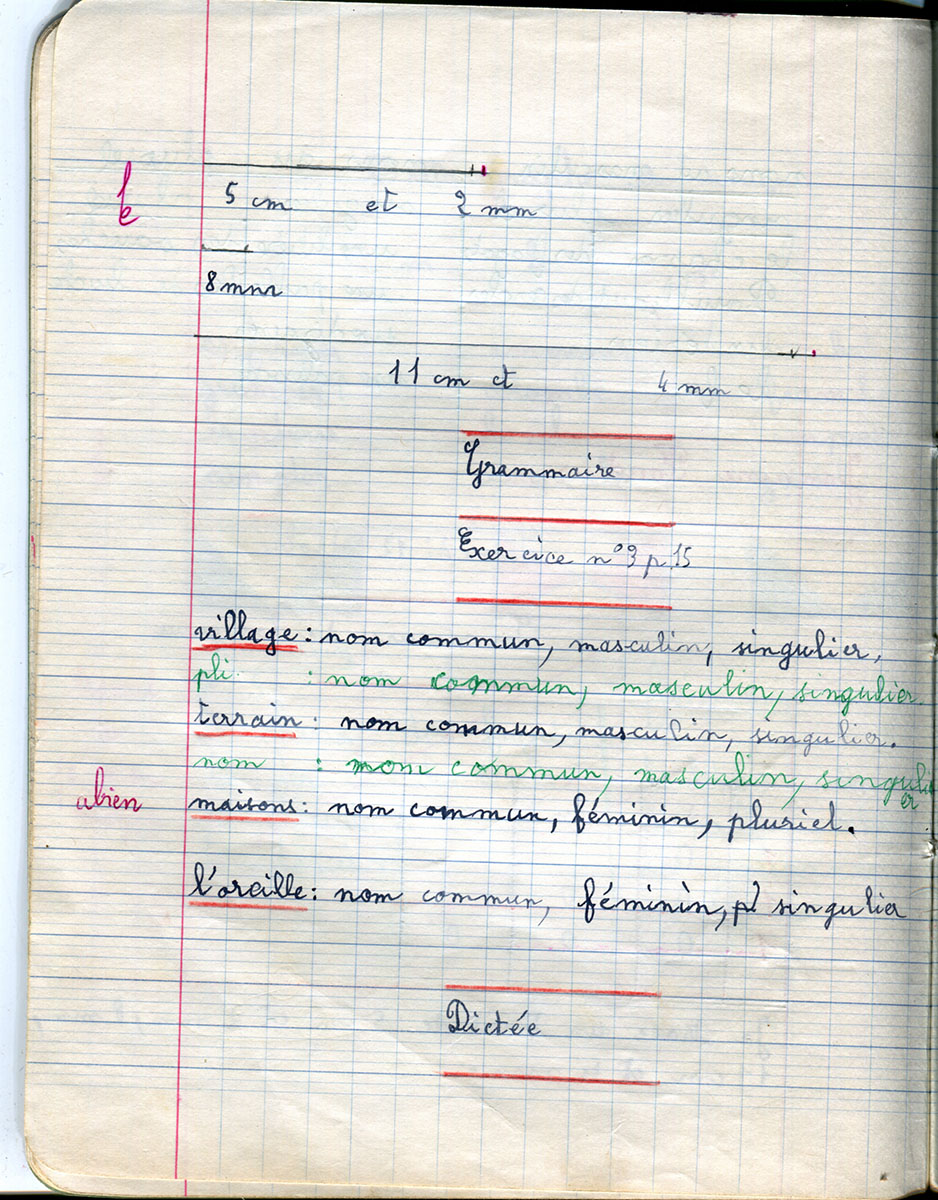 5 cm et 2 mm
8 mm
11 cm et 4 mm
Grammaire
Exercice n° 3 p 15
village : nom commun, masculin, singulier,
pli : nom commun, masculin, singulier.
terrain : nom commun, masculin, singulier.
nom : nom commun, masculin, singulier
maisons : nom commun, féminin, pluriel.
l'oreille : nom commun, féminin, singulier
Dictée